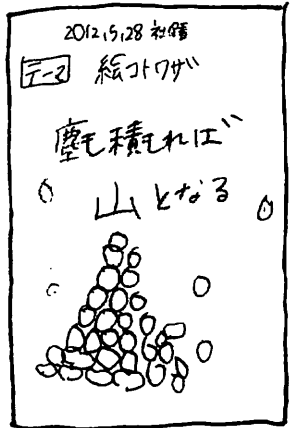 2012,5,28
テーマ 絵コトワザ
塵も積もれば
山となる